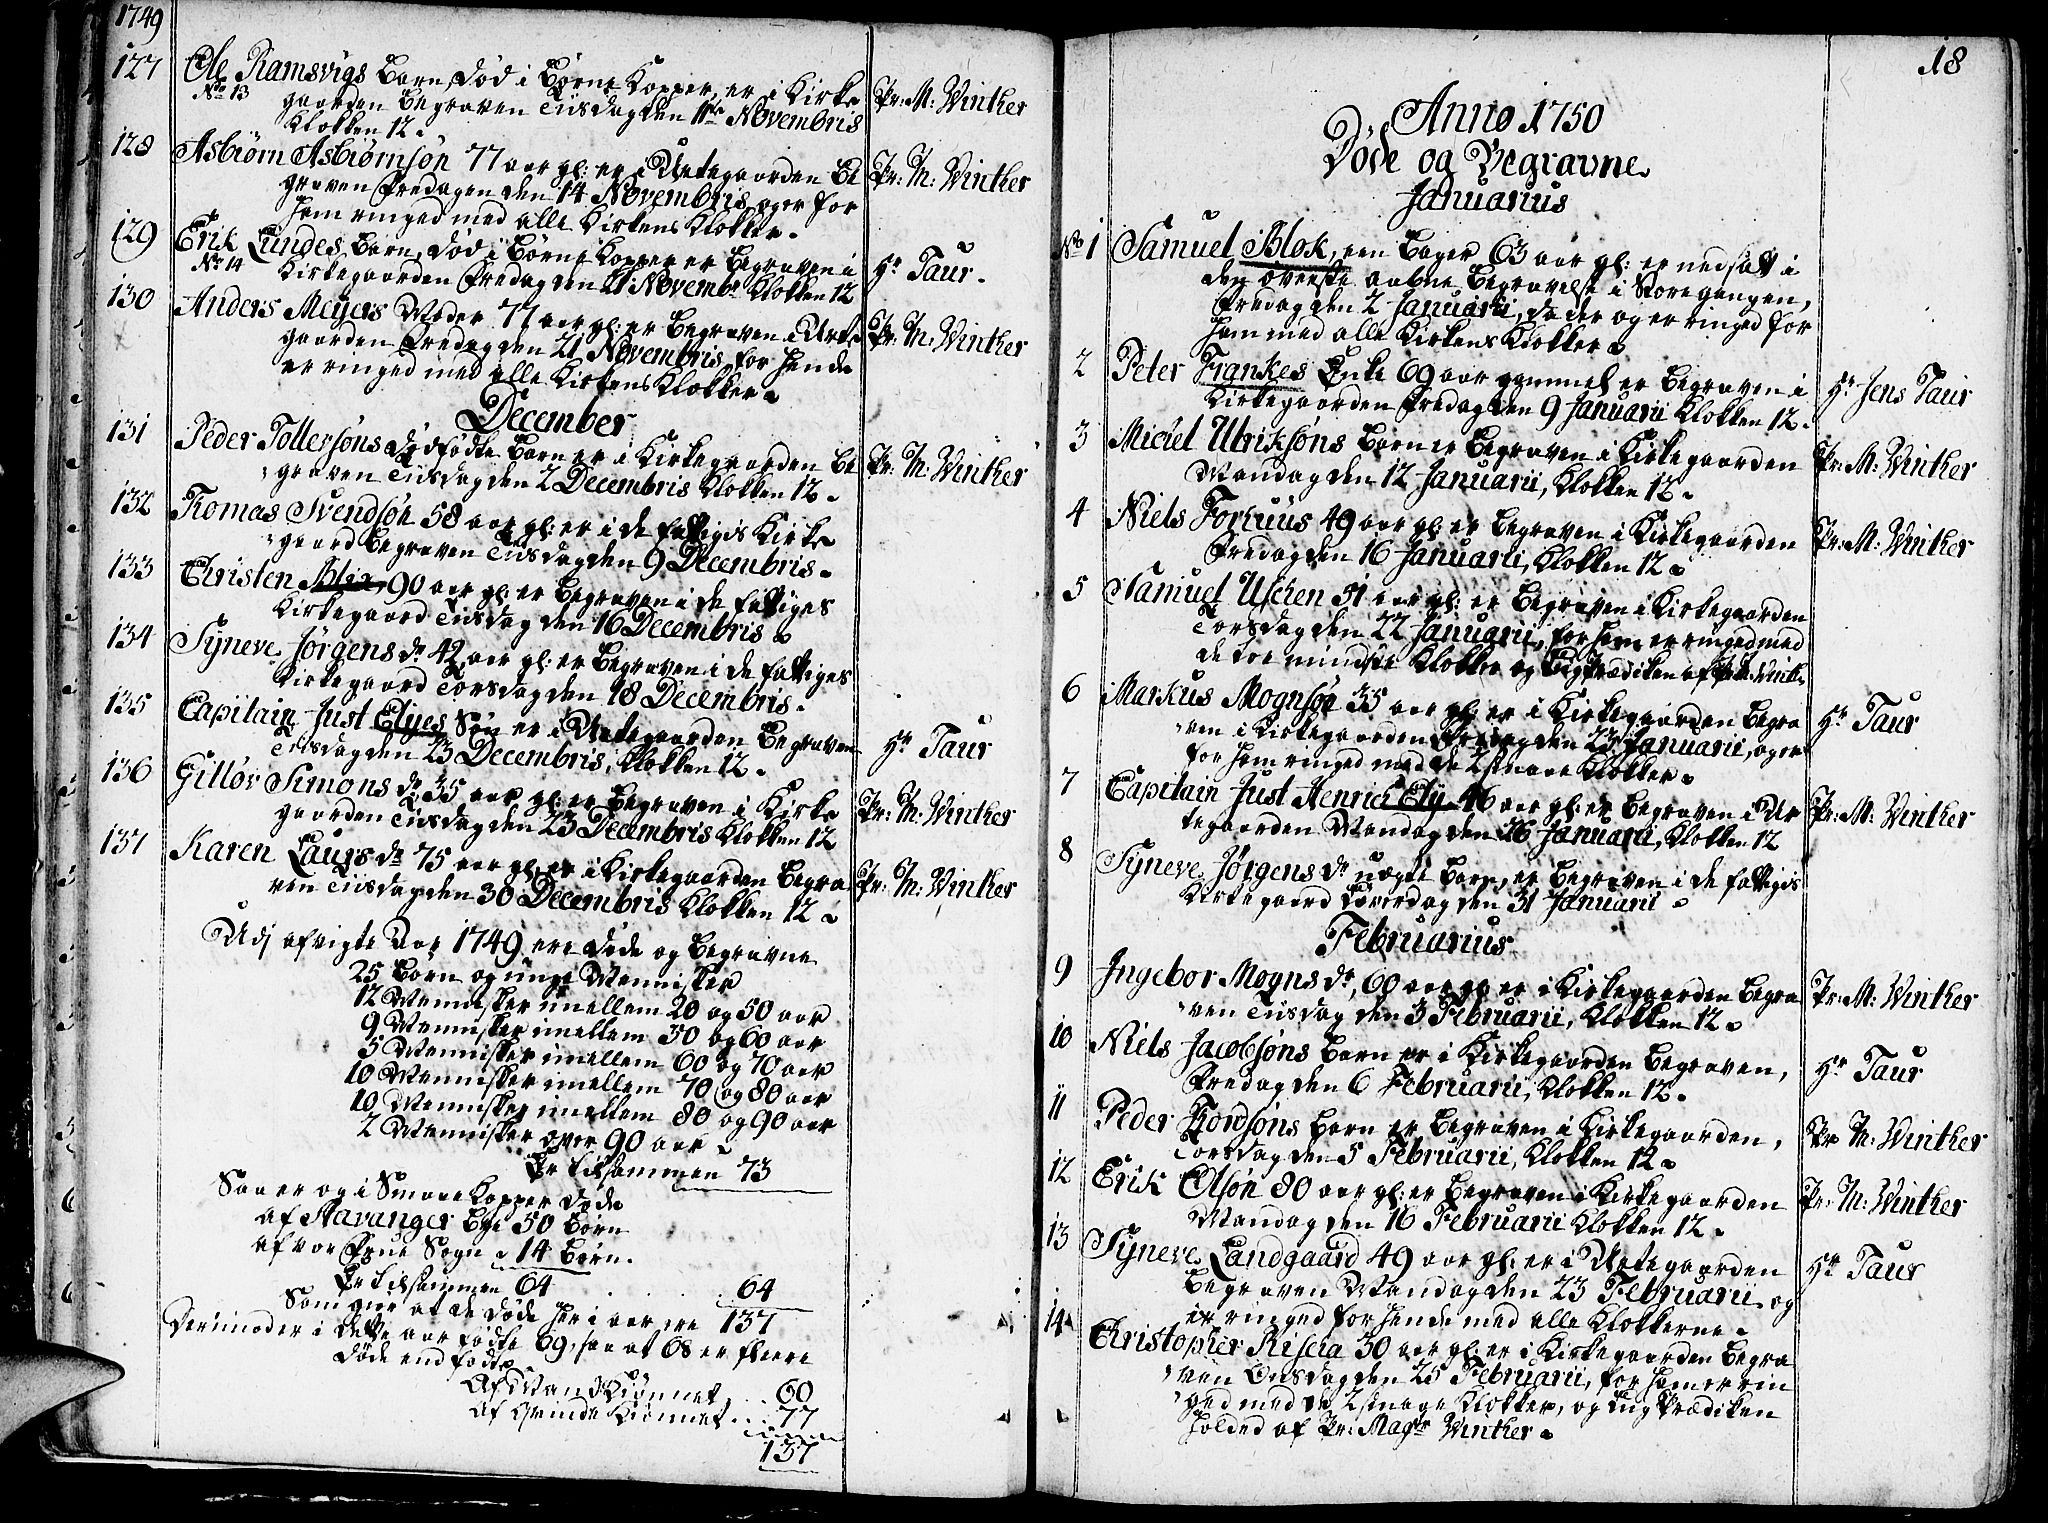 1749
127 Ole Ramsvigs Barn, død i Børne Kopper, er i Kirke
No 13 gaarden Begraven Tiisdag den 11te Novembris
Klokken 12. Pr: M: Winther
128 Asbiørn Asbiørnsøn 77 aar gl: er i Urtegaarden Be
graven Fredagen den 14 Novembris, og er for
ham ringed med alle Kirkens Klokker. Pr: M: Winther
129 Erik Lundes Barn, død i Børne Kopper er Begraven i
No 14 Kirkegaarden Fredag den 21 Novembr Klokken 12 Hr Taur.
130 Anders Meyers Moder 77 aar gl: er Begraven i Urte
gaarden Fredag den 21 Novembris, for hende
er ringed med alle Kirkens Klokker. Pr: M: Winther
December
131 Peder Tollersøns dødfødte Barn er i Kirkegaarden Be
graven Tiisdag den 2 Decembris Klokken 12. Pr: M: Winther
132 Tomas Svendsøn 58 aar gl: er i de fattigis Kirke
gaard Begraven Tiisdag den 9 Decembris.
133 Christen Blix, 90 aar gl: er Begraven i de fattiges
Kirkegaard Tiisdag den 16 Decembris.
134 Syneve Jørgens dr 42 aar gl: er Begraven i de fattiges
Kirkegaard Torsdag den 18 Decembris.
135 Capitain Just Elyes Søn er i Urtegaarden Begraven
Tiisdag den 23 Decembris, Klokken 12. Hr Taur
136 Gilløv Simons dr 35 aar gl: er Begraven i Kirke
gaarden Tiisdag den 23 Decembris Klokken 12 Pr: M: Winther
137 Karen Laurs dr 75 aar gl: er i Kirkegaarden Begra
ven Tiisdag den 30 Decembris Klokken 12. Pr: M: Winther
Udj afvigte Aar 1749 ere døde og Begravne
25 Børn og unge Mennisker
12 Mennisker imellem 20 og 50 aar
9 Mennisker imellem 50 og 60 aar
5 Mennisker imellem 60 og 70 aar
10 Mennisker imellem 70 og 80 aar
10 Mennisker imellem 80 og 90 aar
2 Mennisker over 90 aar
Er tilsammen 73
Saa er og i Smaae Kopper døde
af Stavanger Bye 50 Børn
af vor Frue Sogn 14 Børn.
Er tilsammen 64 . . . . 64
Som giør at de døde her i aar ere 137
Derimoder i dette aar fødte 69, saa at 68 er fleere
døde end fødte
Af Mand Kiønnet . . 60
Af Qvinde Kiønnet . . . 77
137
18
Anno 1750
Døde og Begravne
Januarius
No 1 Samuel Blok, een Bager 63 aar gl: er nedsatt i
den øverste aabne Begravelse i Store gangen,
Fredag den 2 Januarii, da der og er ringed for
ham med alle Kirkens Klokker.
2 Peter Frankes Enke 69 aar gammel er Begraven i
Kirkegaarden Fredag den 9 Januarii Klokken 12. Hr Jens Taur
3 Michel Ulriksøns Barn er Begraven i Kirkegaarden
Mandag den 12 Januarii, Klokken 12. Pr: M: Winther
4 Niels Forhuus 49 aar gl: er Begraven i Kirkegaarden
Fredag den 16 Januarii, Klokken 12. Pr: M: Winther
5 Samuel Uschen 51 aar gl: er Begraven i Kirkegaarden
Torsdag den 22 Januarii, for ham er ringed med
de toe mindste Klokker og Liigprædiken af Pr: M: Winth.
6 Markus Mognsøn 35 aar gl: er i Kirkegaarden Begra
ven i Kirkegaarden Fredag den 23 Januarii, og er
for ham ringed med de 2 smaae Klokker. Hr Taur
7 Capitain Just Henrich Ely 46 aar gl: er Begraven i Ur
tegaarden Mandag den 26 Januarii, Klokken 12 Pr: M: Winther
8 Syneve Jørgens dr uægte Barn, er Begraven i de fattigis
Kirkegaard Løverdag den 31 Januarii
Februarius
9 Ingebor Mogns dr, 60 aar gl: er i Kirkegaarden Begra
ven Tiisdag den 3 Februarii, Klokken 12. Pr: M: Winther
10 Niels Jacobsøns Barn er i Kirkegaarden Begraven,
Fredag den 6 Februarii, Klokken 12. Hr Taur
11 Peder Fiordsøns Barn er Begraven i Kirkegaarden,
Torsdag den 5 Februarii, Klokken 12. Pr M: Winther
12 Erik Olsøn 80 aar gl: er Begraven i Kirkegaarden
Mandag den 16 Februarii Klokken 12. Pr: M: Winther
13 Syneve Landgaard 49 aar gl: er i Urtegaarden
Begraven Mandag den 23 Februarii og
er ringed for hende med alle Klokkerne. Hr Taur
14 Christopher Risera 30 aar gl: er i Kirkegaarden Begra
ven Onsdag den 25 Februarii, for ham er rin
ged med de 2 smaae Klokker, og Liig Prædiken
holded af Pr: Magr Winther.